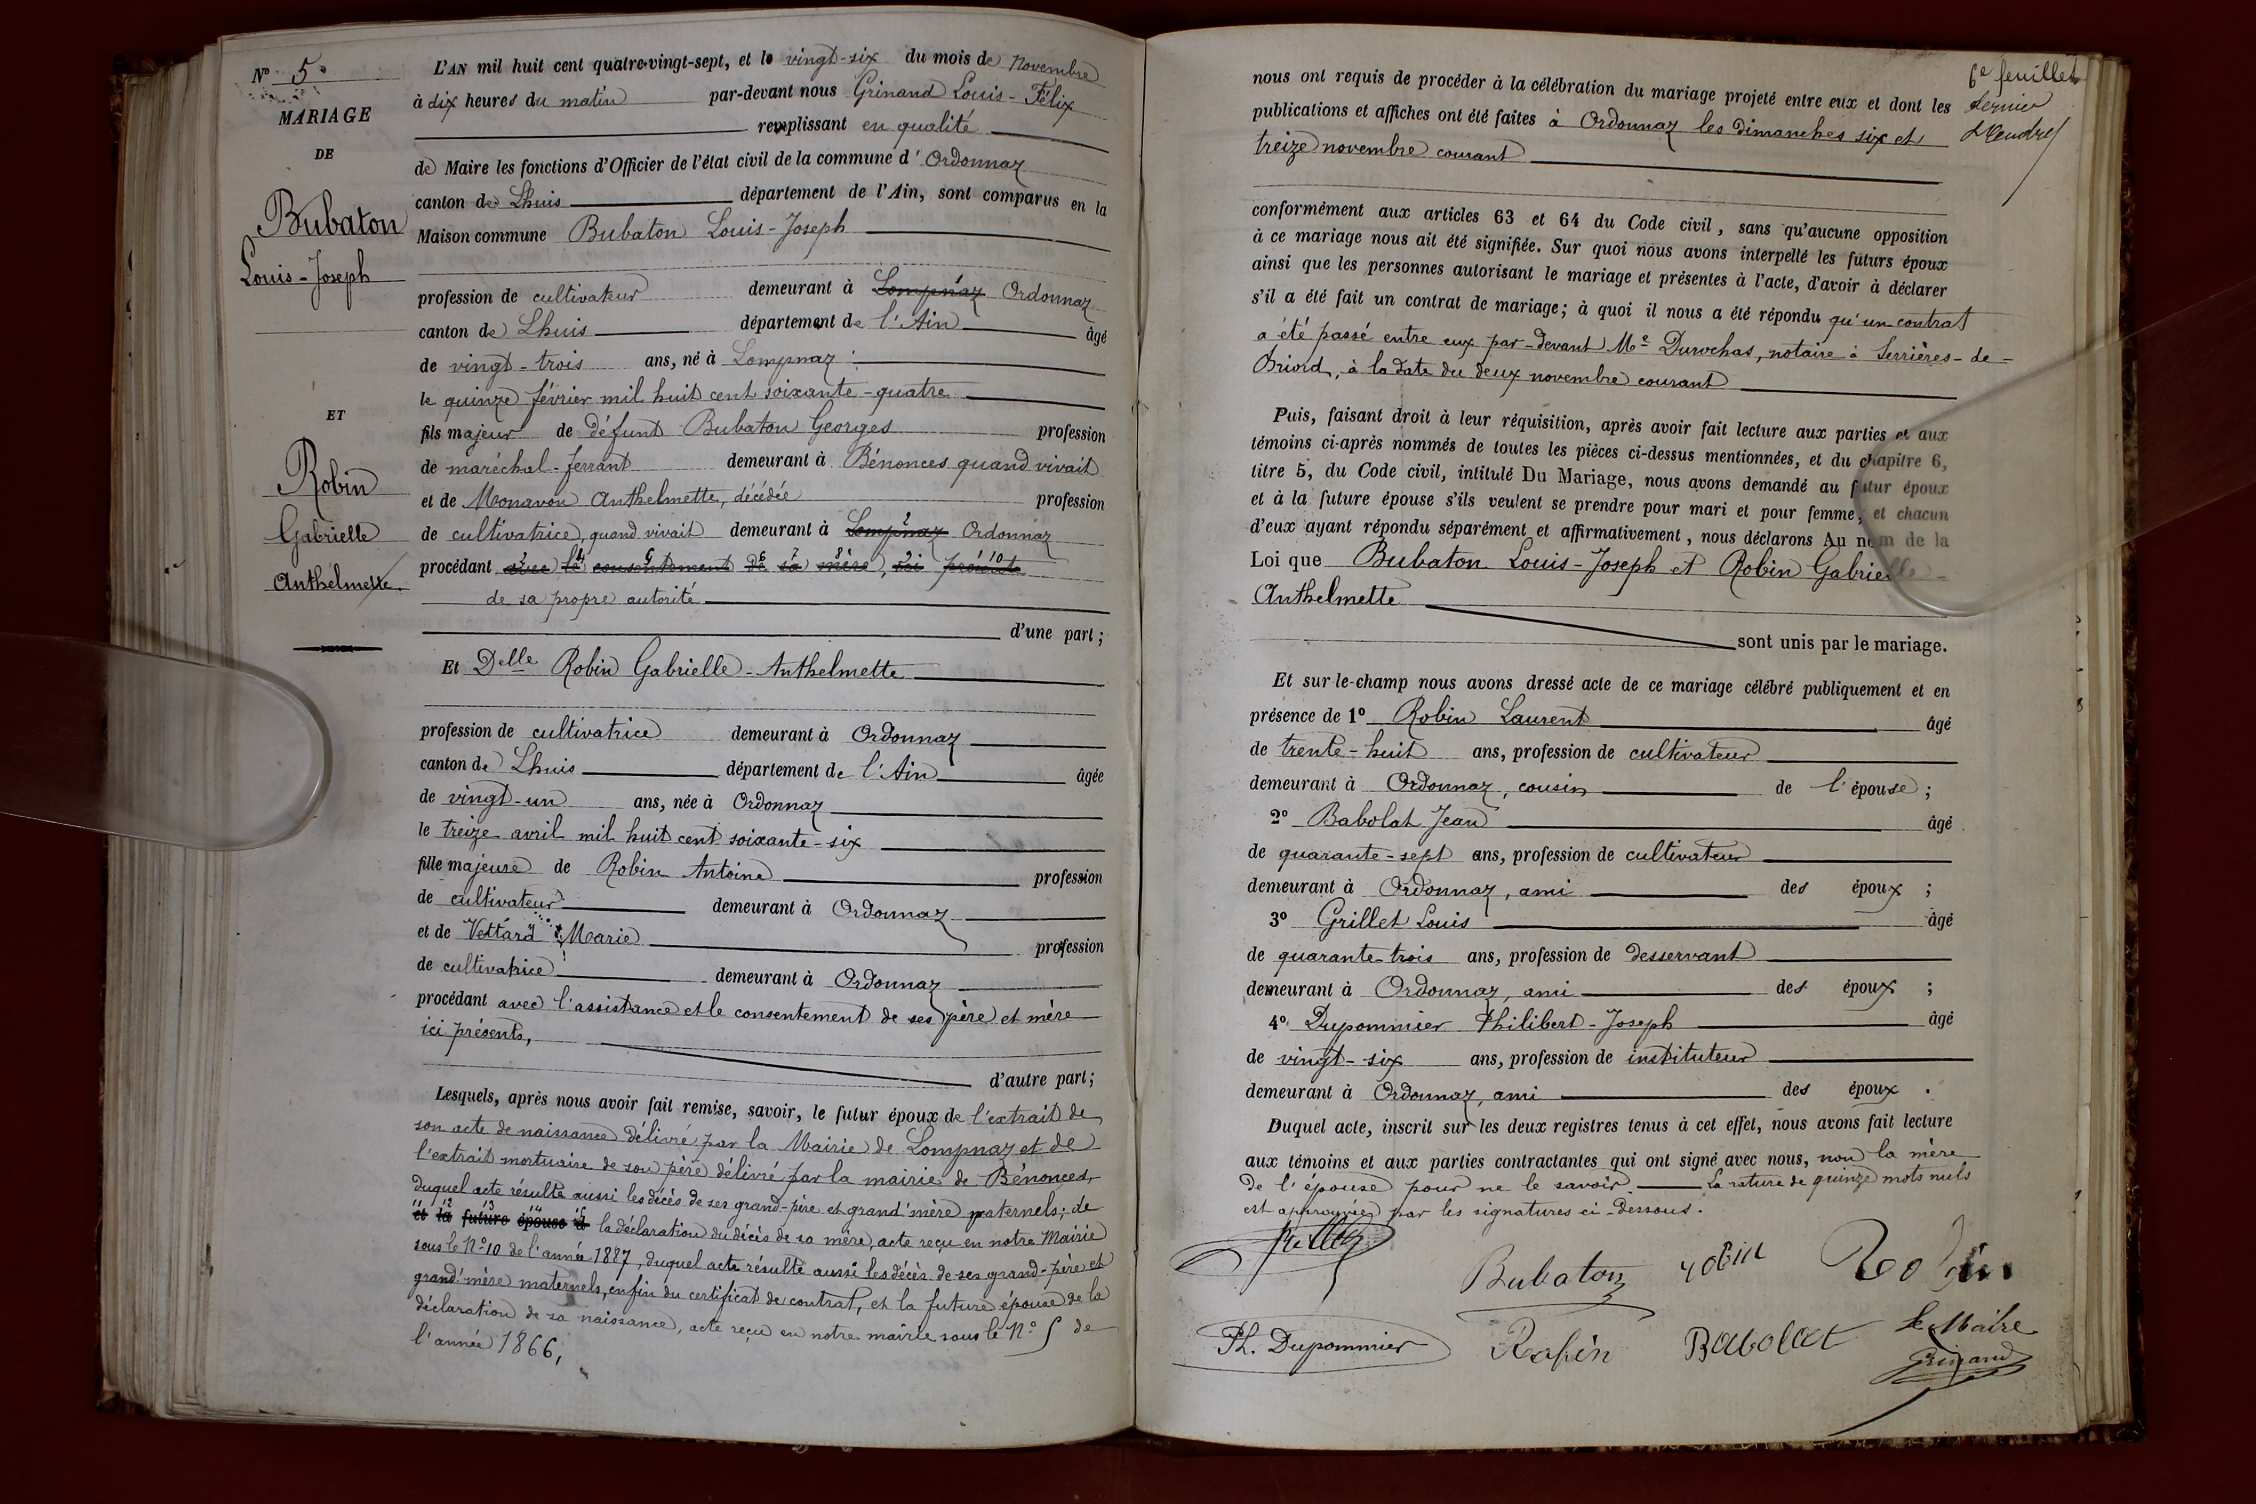 Nº 5.
MARIAGE
DE
Bubaton
Louis-Joseph
ET
Robin
Gabrielle
Anthelmette.
L'AN mil huit cent quatre-vingt-sept, et le vingt-six du mois de Novembre
à dix heures du matin par-devant nous Grinand Louis-Félix
remplissant en qualité
de Maire les fonctions d'Officier de l'état civil de la commune d'Ordonnaz
canton de Lhuis département de l'Ain, sont comparus en la
Maison commune Bubaton Louis-Joseph
profession de cultivateur demeurant à Lompnaz Ordonnaz
canton de Lhuis département de l'Ain âgé
de vingt-trois ans, né à Lompnaz
le quinze février mil huit cent soixante-quatre
fils majeur de défunt Bubaton Georges profession
de maréchal-ferrant demeurant à Bénonces quand vivait
et de Monavon Anthelmette, décédée profession
de cultivatrice, quand vivait demeurant à Lompnaz Ordonnaz
procédant avec le consentement de sa mère, ici présente
de sa propre autorité
d'une part;
Et Delle Robin Gabrielle-Anthelmette
profession de cultivatrice demeurant à Ordonnaz
canton de Lhuis département de l'Ain âgée
de vingt-un ans, née à Ordonnaz
le treize avril mil huit cent soixante-six
fille majeure de Robin Antoine profession
de cultivateur demeurant à Ordonnaz
et de Vettard Marie profession
de cultivatrice demeurant à Ordonnaz
procédant avec l'assistance et le consentement de ses père et mère
ici présents,
d'autre part;
Lesquels, après nous avoir fait remise, savoir, le futur époux de l'extrait de
son acte de naissance délivré par la Mairie de Lompnaz et de
l'extrait mortuaire de son père délivré par la mairie de Bénonces,
duquel acte résulte aussi les décès de ses grand-père et grand'mère paternels; de
et la future épouse d la déclaration du décès de sa mère, acte reçu en notre Mairie
sous le Nº 10 de l'année 1887, duquel acte résulte aussi les décès de ses grand-père et
grand'mère maternels, enfin du certificat de contrat, et la future épouse de la
déclaration de sa naissance, acte reçu en notre mairie sous le Nº 5 de
l'année 1866,
6e feuillet
dernier
nous ont requis de procéder à la célébration du mariage projeté entre eux et dont les
publications et affiches ont été faites à Ordonnaz les dimanches six et
treize novembre courant
conformément aux articles 63 et 64 du Code civil, sans qu'aucune opposition
à ce mariage nous ait été signifiée. Sur quoi nous avons interpellé les futurs époux
ainsi que les personnes autorisant le mariage et présentes à l'acte, d'avoir à déclarer
s'il a été fait un contrat de mariage; à quoi il nous a été répondu qu'un contrat
a été passé entre eux par-devant Me Durochas, notaire à Serrières-de-
Briord, à la date du deux novembre courant
Puis, faisant droit à leur réquisition, après avoir fait lecture aux parties et aux
témoins ci-après nommés de toutes les pièces ci-dessus mentionnées, et du chapitre 6,
titre 5, du Code civil, intitulé Du Mariage, nous avons demandé au futur époux
et à la future épouse s'ils veulent se prendre pour mari et pour femme; et chacun
d'eux ayant répondu séparément et affirmativement, nous déclarons Au nom de la
Loi que Bubaton Louis-Joseph et Robin Gabrielle-
Anthelmette
sont unis par le mariage.
Et sur-le-champ nous avons dressé acte de ce mariage célébré publiquement et en
présence de 1º Robin Laurent âgé
de trente-huit ans, profession de cultivateur
demeurant à Ordonnaz, cousin de l'épouse;
2º Babolat Jean âgé
de quarante-sept ans, profession de cultivateur
demeurant à Ordonnaz, ami des époux;
3º Grillet Louis âgé
de quarante-trois ans, profession de desservant
demeurant à Ordonnaz, ami des époux;
4º Dupommier Philibert-Joseph âgé
de vingt-six ans, profession de instituteur
demeurant à Ordonnaz, ami des époux.
Duquel acte, inscrit sur les deux registres tenus à cet effet, nous avons fait lecture
aux témoins et aux parties contractantes qui ont signé avec nous, non la mère
de l'épouse pour ne le savoir. La rature de quinze mots nuls
est approuvée par les signatures ci-dessous.
Grillet
Bubaton robin Robin
Ph. Dupommier Robin Babolat Le Maire
Grinand